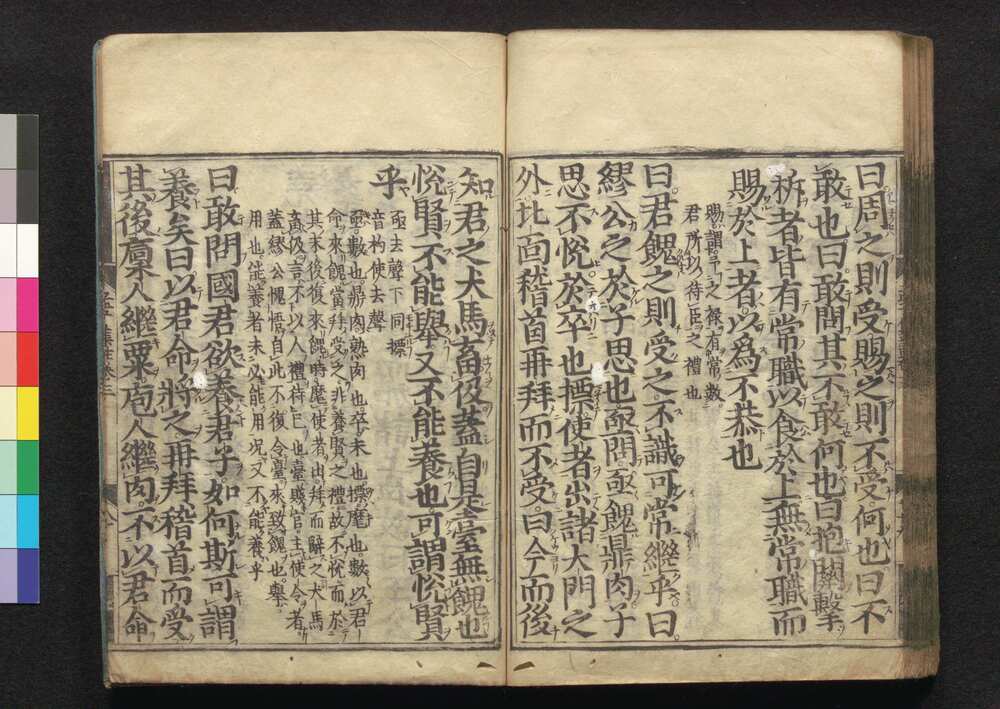 曰周之則受賜之則不受何也曰不
敢也曰敢問其不敢何也曰抱關擊
柝者皆有常職以食於上無常職而
賜於上者以爲不恭也
賜謂予之祿有常數
君所以待臣之禮也
曰君餽之則受之不識可常繼乎曰
繆公之於子思也亟問亟餽鼎肉子
思不悅於卒也摽使者出諸大門之
外北面稽首再拜而不受曰今而後
知君之犬馬畜伋蓋自是臺無餽也
悅賢不能舉又不能養也可謂悅賢
乎
亟去聲下同摽
音杓使去聲
亟數也鼎肉熟肉也卒末也摽麾也數以君
命來餽當拜受之非養賢之禮故不悅而於
其末後復來餽時麾使者出拜而辭之犬馬
畜伋言不以人禮待己也臺賤官主使令者
蓋繆公愧悟自此不復令臺來致餽也舉
用也能養者未必能用况又不能養乎
曰敢問國君欲養君子如何斯可謂
養矣曰以君命將之再拜稽首而受
其後廩人繼粟庖人繼肉不以君命